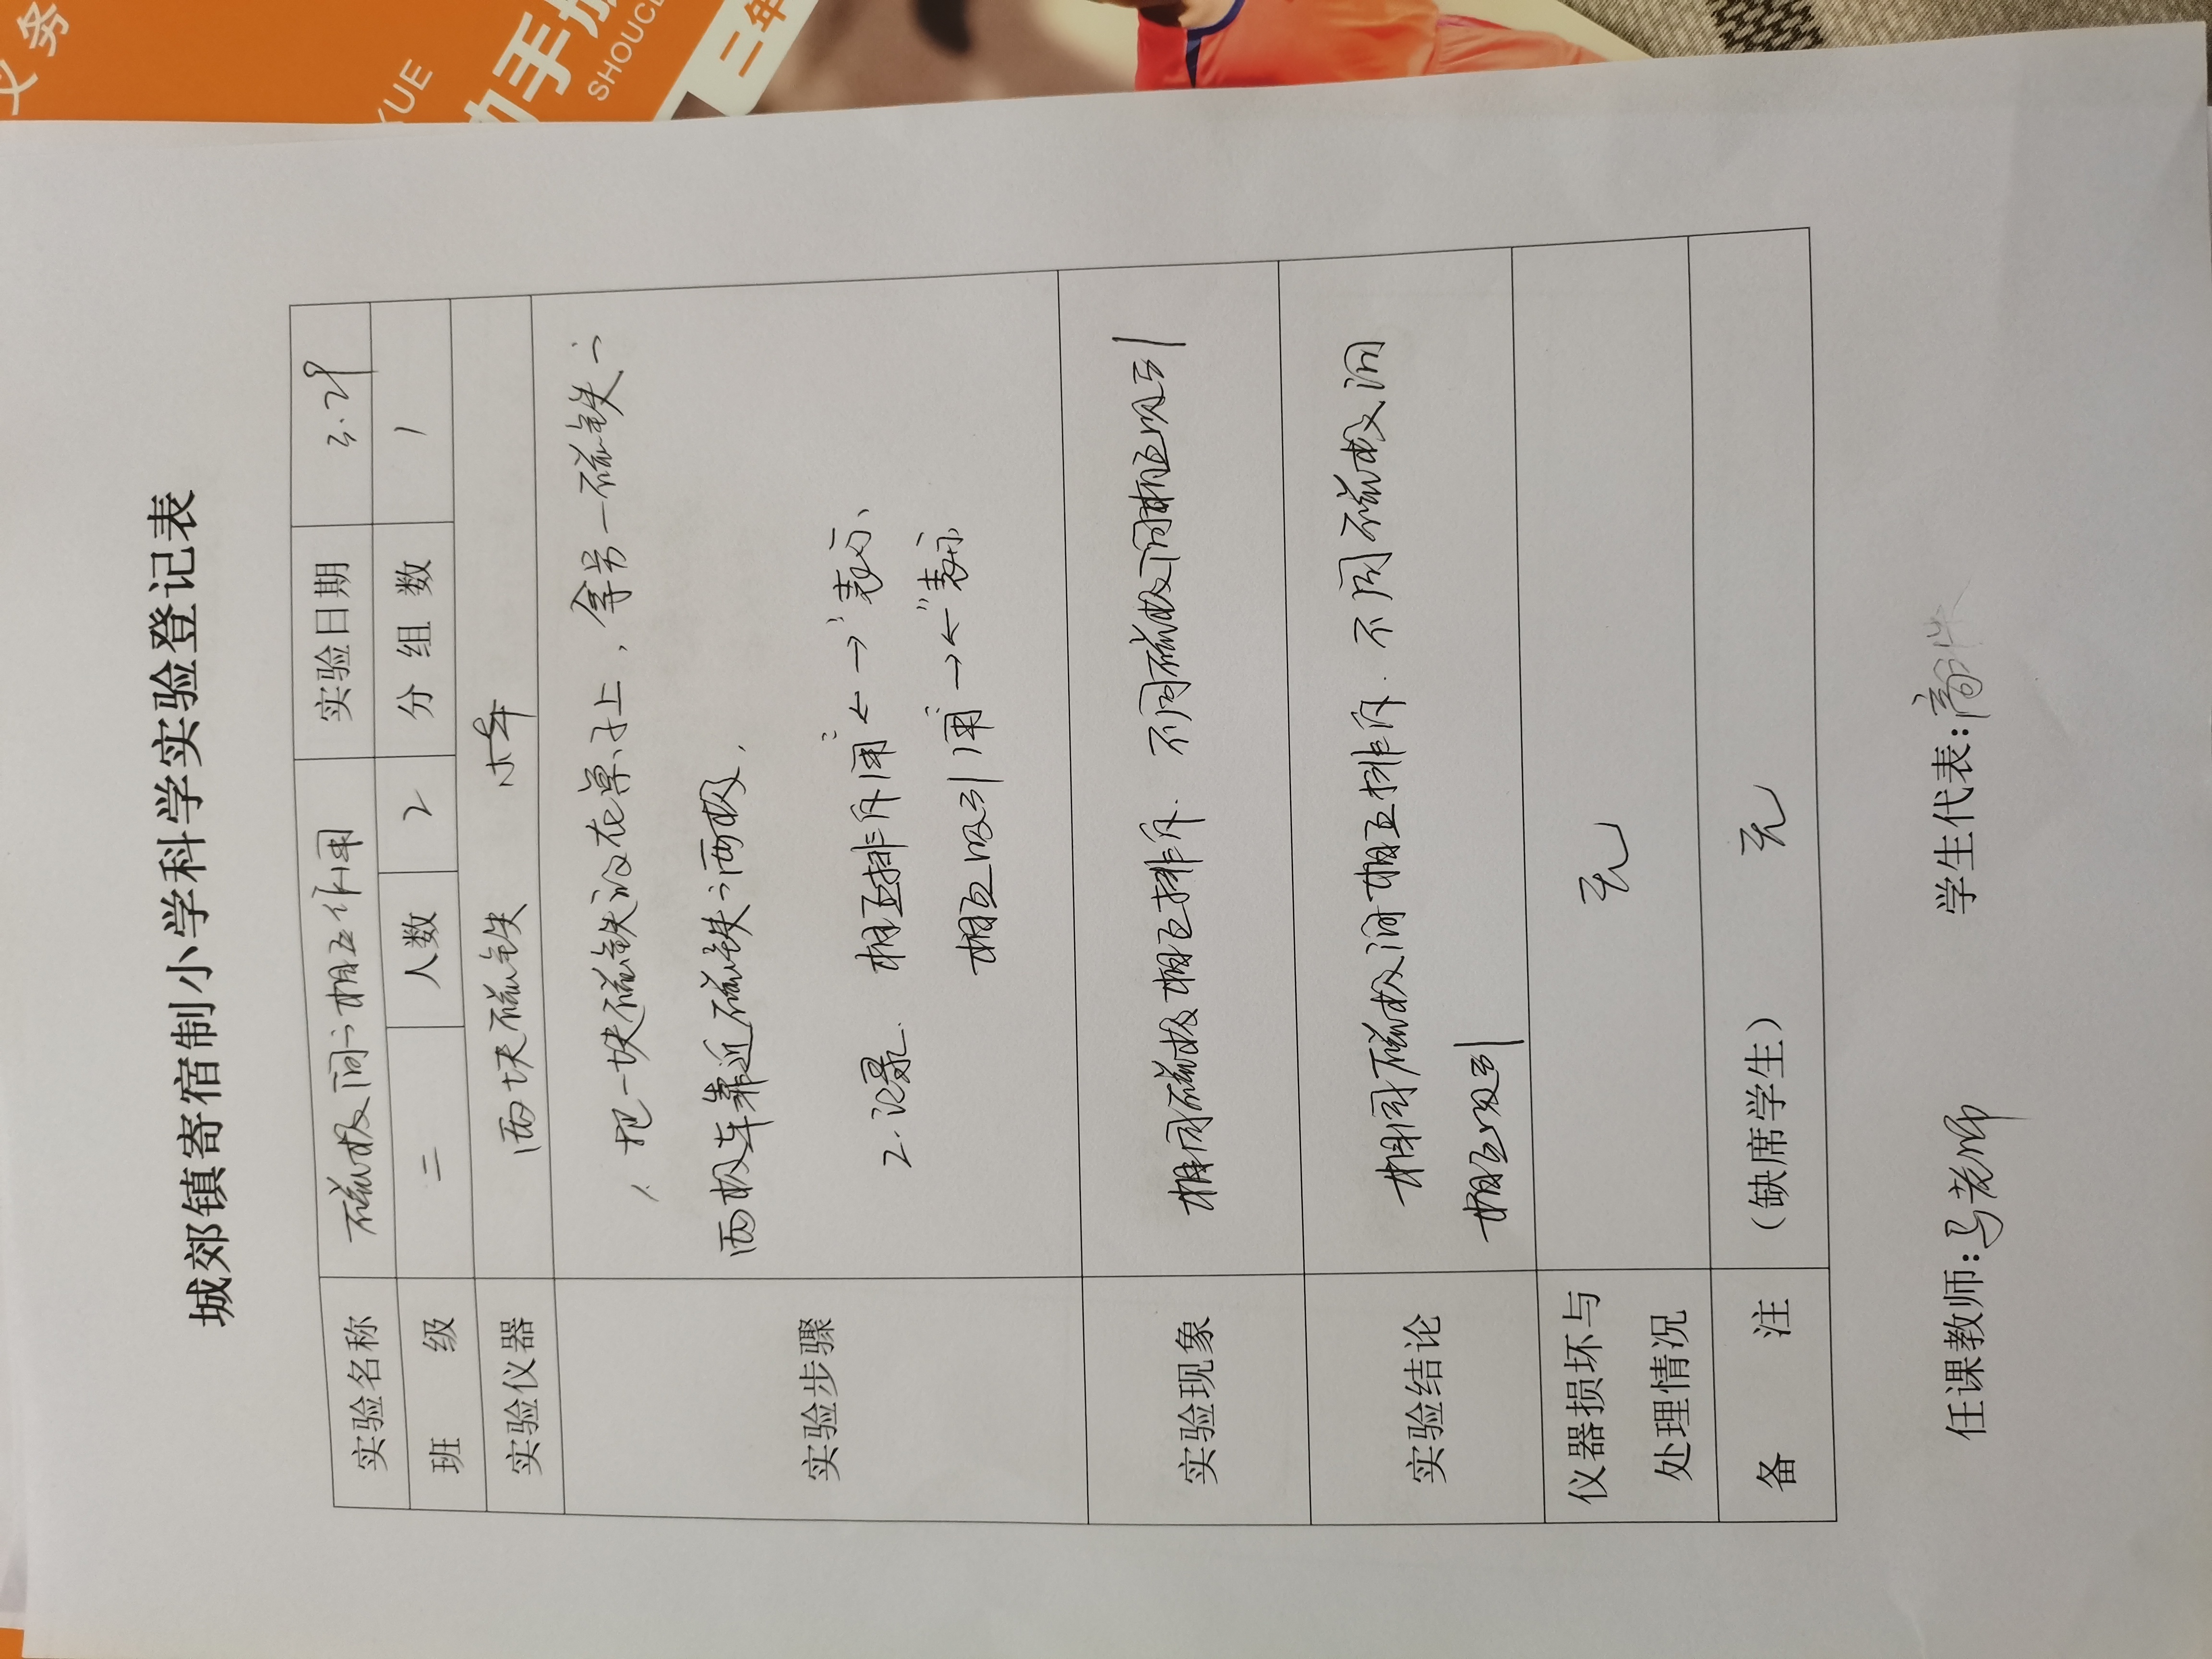 义务
YUE
动手册
SHOUCE
三年
城郊镇寄宿制小学科学实验登记表
实验名称 磁极间的相互作用 实验日期 3.29
班 级 二 人数 2 分组数 1
实验仪器 两块磁铁 小车
实验步骤 1. 把一块磁铁放在桌子上，拿另一磁铁的
两极去靠近磁铁的两极.
2.记录. 相互排斥用“← →”表示、
相互吸引用“→←”表示
实验现象 相同磁极相互排斥. 不同磁极间相互吸引
实验结论 相同磁极间相互排斥. 不同磁极间
相互吸引
仪器损坏与 无
处理情况
备 注 （缺席学生） 无
任课教师：马老师 学生代表：